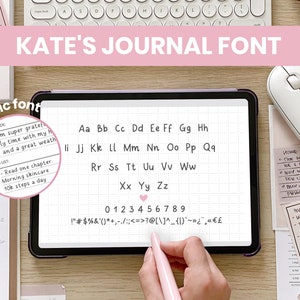 KATE'S JOURNAL FONT
ic font
super grateful
time with my
and a great weath
Read one chapter
Morning skincare
10k steps a day
Aa Bb Cc Dd Ee Ff Gg Hh
Ii Jj Kk Ll Mm Nn Oo Pp Qq
Rr Ss Tt Uu Vv Ww
Xx Yy Zz
0 1 2 3 4 5 6 7 8 9